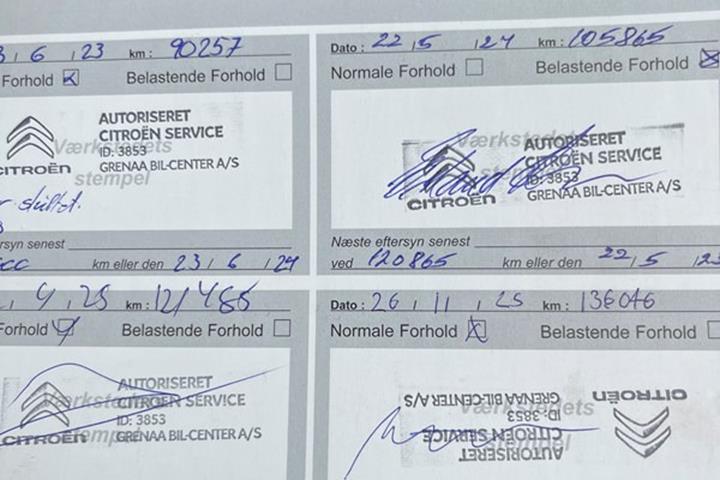 3 / 6 / 23 km: 90257
Forhold Belastende Forhold
AUTORISERET
CITROËN SERVICE
ID: 3853
GRENAA BIL-CENTER A/S
CITROËN
Værkstedets
stempel
ersyn senest
km eller den 23 / 6 / 24
Dato: 22 / 5 / 24 km: 105865
Normale Forhold Belastende Forhold
AUTORISERET
CITROËN SERVICE
ID: 3853
GRENAA BIL-CENTER A/S
CITROËN
Værkstedets
stempel
Næste eftersyn senest
ved 120865 km eller den 22 / 5
4 / 25 km: 121485
Forhold Belastende Forhold
AUTORISERET
CITROËN SERVICE
ID: 3853
GRENAA BIL-CENTER A/S
CITROËN
Værkstedets
stempel
Dato: 26 / 11 / 25 km: 136046
Normale Forhold Belastende Forhold
CITROËN
Værkstedets
stempel
AUTORISERET
CITROËN SERVICE
ID: 3853
GRENAA BIL-CENTER A/S